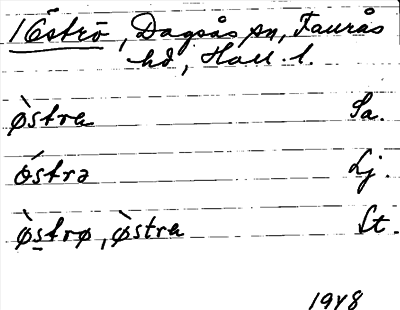 1 Öströ, Dagsås sn, Faurås
hd, Hall. l.
ø̀stra Sa.
östrə Lj.
ø̀strø, ø̀stra St.
1948